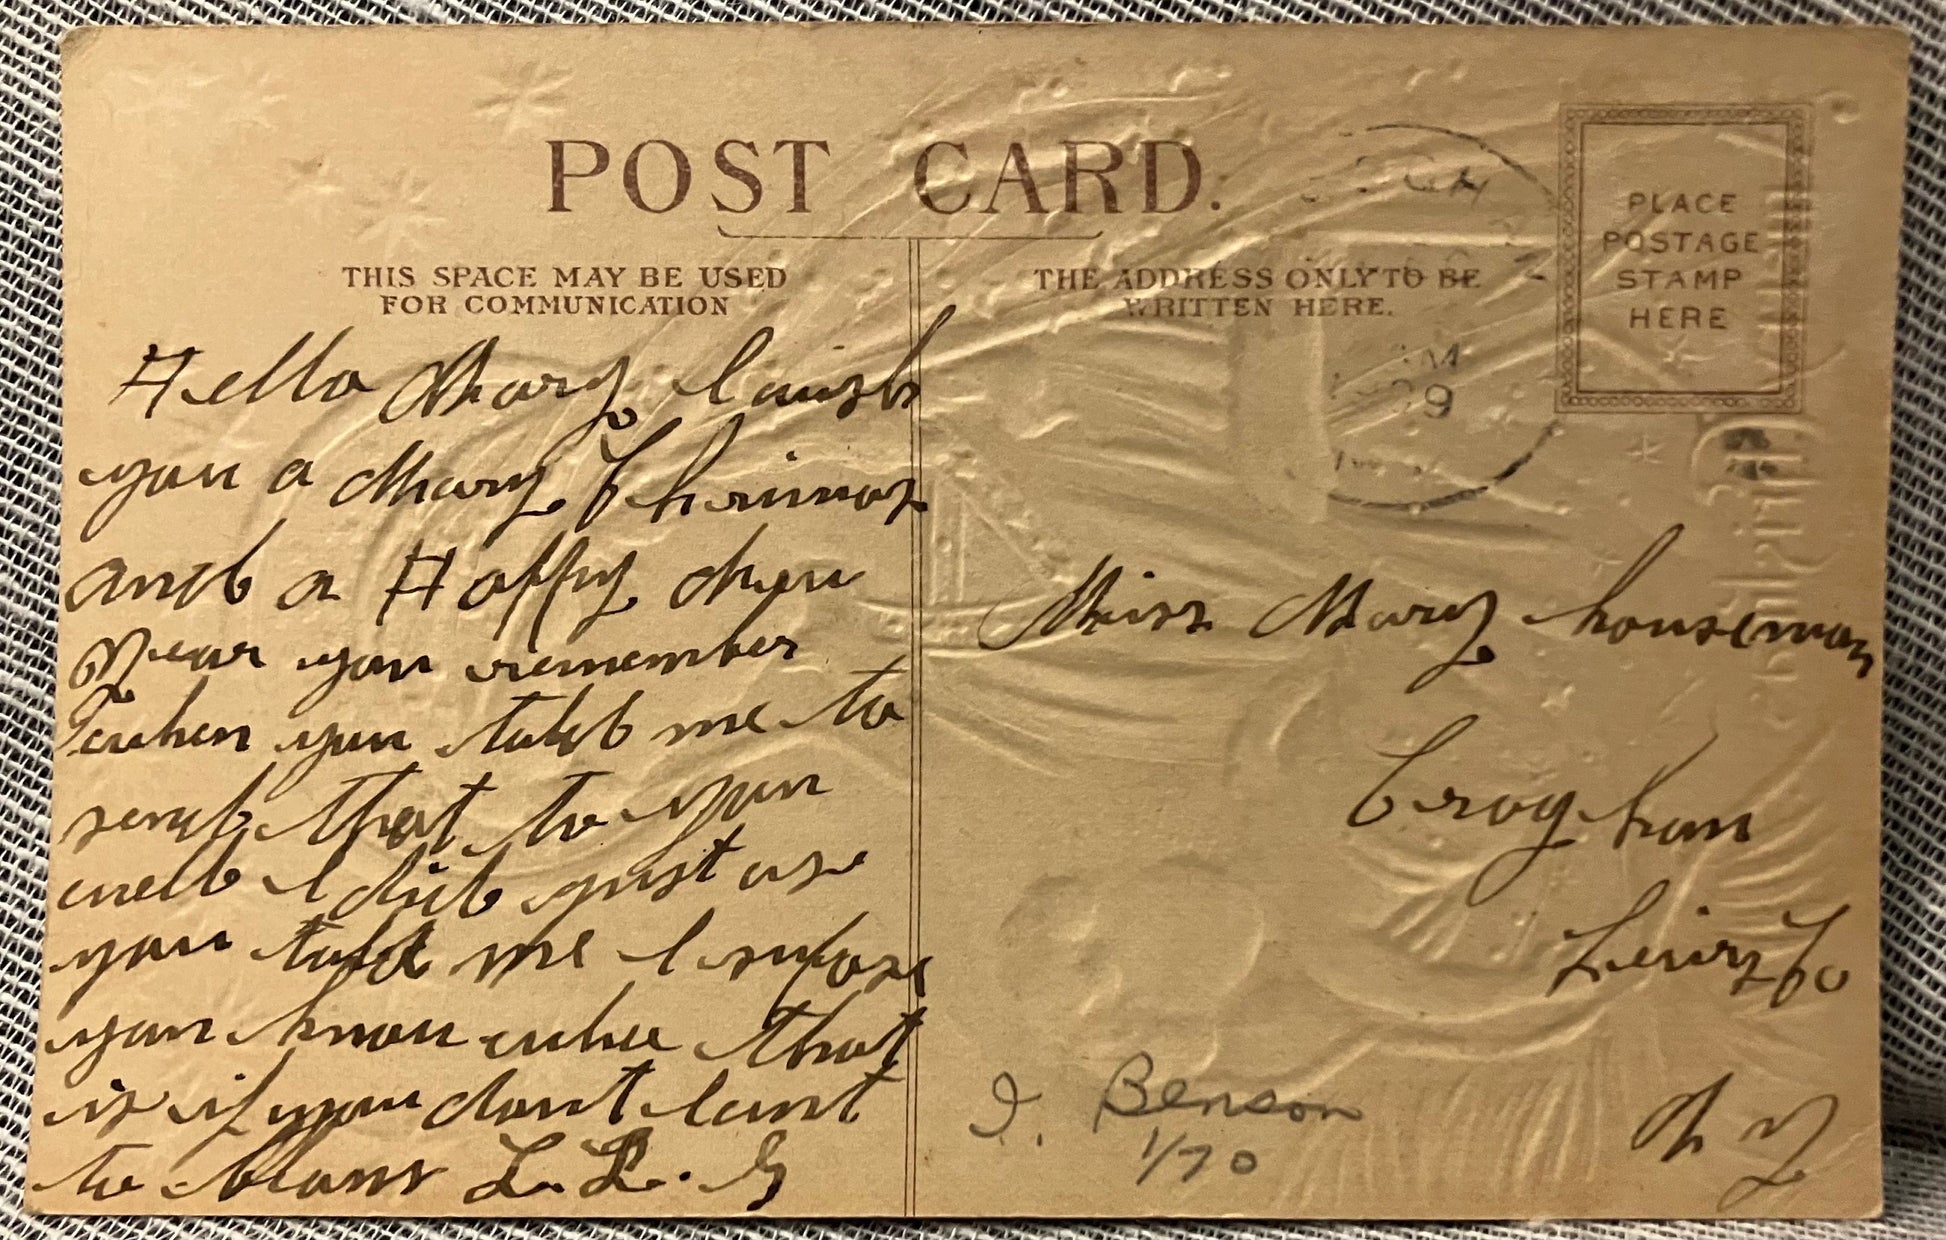 POST CARD.
THIS SPACE MAY BE USED
FOR COMMUNICATION
THE ADDRESS ONLY TO BE
WRITTEN HERE.
PLACE
POSTAGE
STAMP
HERE
Hello Mary I wish
you a Mary Chrimas
and a Happy New
Year you remember
when you told me to
send that to you
well I did just as
you told me I supose
you know who that
is if you dont want
to L. L. G
Miss Mary houseman
Croghan
Lewis Co
N Y
I. Benson
1/70